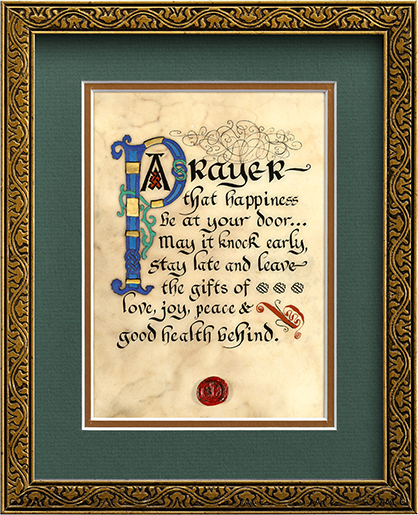 A Prayer
that happiness
be at your door...
May it knock early,
stay late and leave
the gifts of
love, joy, peace &
good health behind.